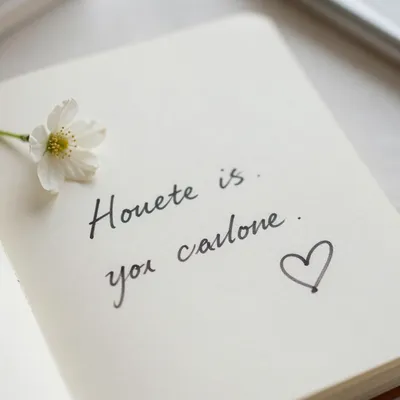 Houete is.
you caulone.